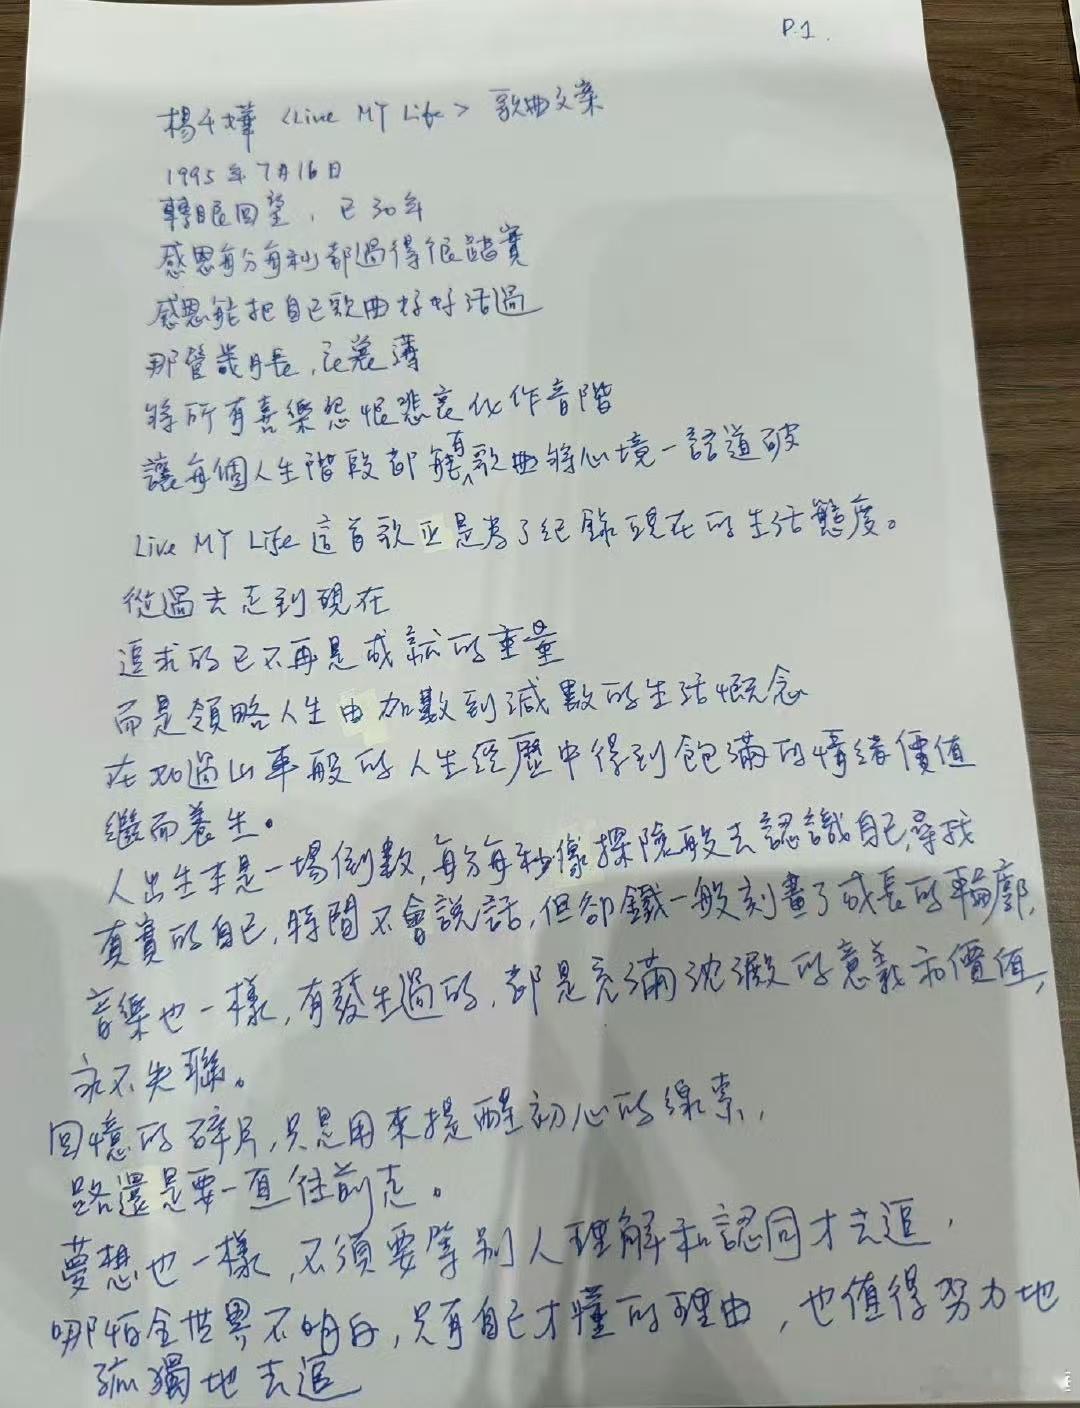 P.1.
楊千嬅 <Live MY Life> 歌曲文案
1995年7月16日
轉眼回望，已30年
感恩每分每秒都過得很踏實
感恩能把自己歌曲好好活過
那管歲月長，衣裳薄
將所有喜樂怨恨悲哀化作音階
讓每個人生階段都能有歌曲將心境一語道破
Live MY Life 這首歌正是為了紀錄現在的生活態度。
從過去走到現在
追求的已不再是成就的重量
而是領略人生由加數到減數的生活概念
在如過山車般的人生經歷中得到飽滿的情緒價值
繼而養生。
人出生本是一場倒數，每分每秒像探險般去認識自己，尋找
真實的自己，時間不會說話，但卻鐵一般刻畫了成長的輪廓，
音樂也一樣，有發生過的，都是充滿沈澱的意義和價值，
永不失聯。
回憶的碎片，只是用來提醒初心的線索，
路還是要一直往前走。
夢想也一樣，不須要等別人理解和認同才去追，
哪怕全世界不明白，只有自己才懂的理由，也值得努力地
孤獨地去追